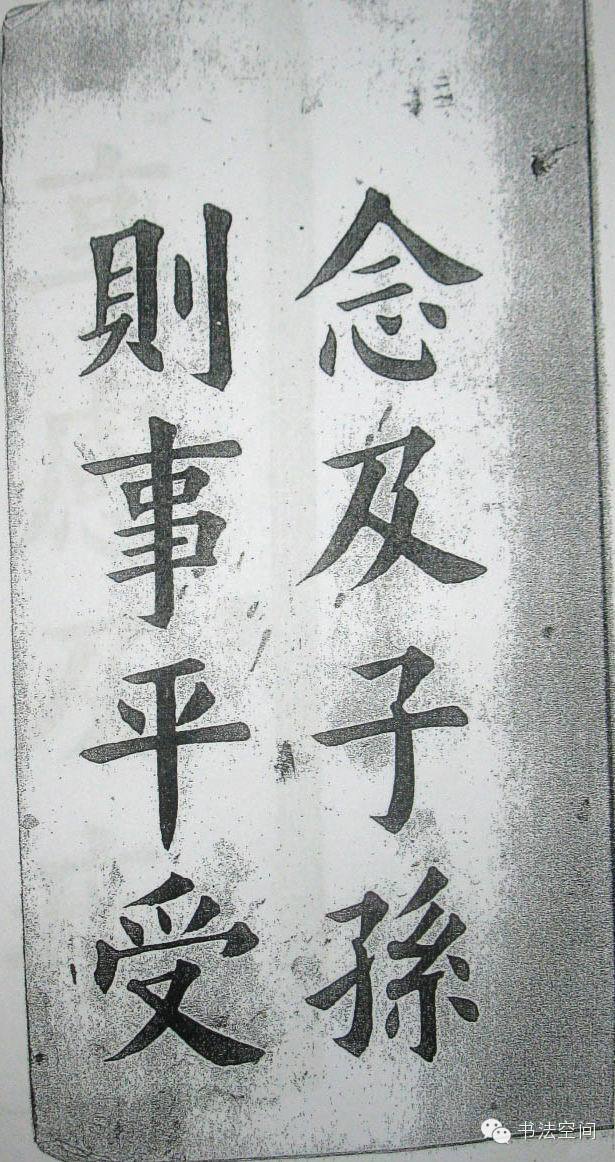 念及子孫
則事平受
书法空间